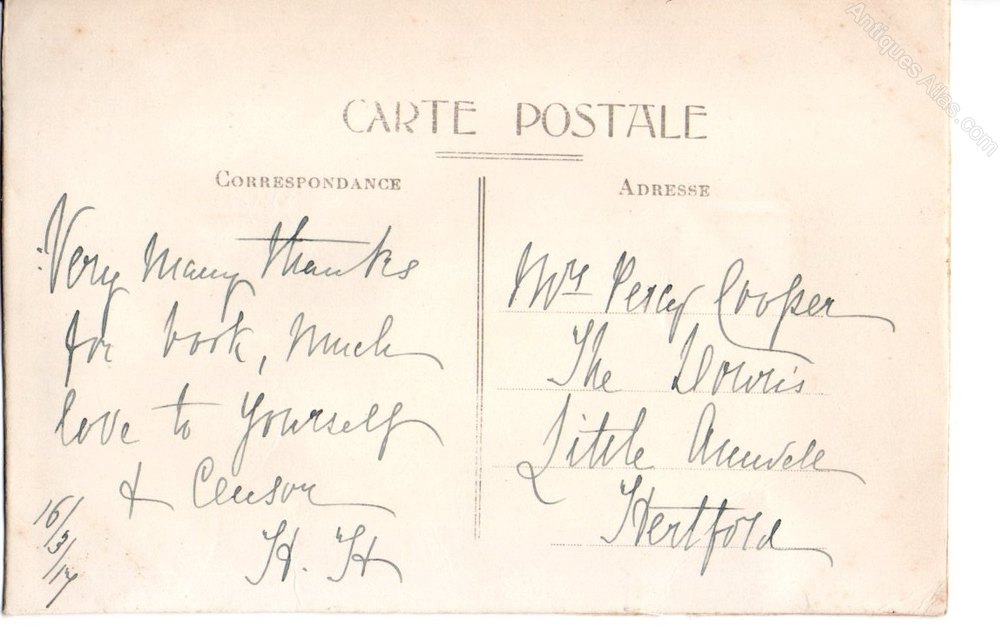 CARTE POSTALE
CORRESPONDANCE
Very many thanks
for book, much
love to yourself
& Censor
H. H
16/3/17
ADRESSE
Mrs Percy Cooper
The Downs
Little Amwell
Hertford
Antiques Atlas.com